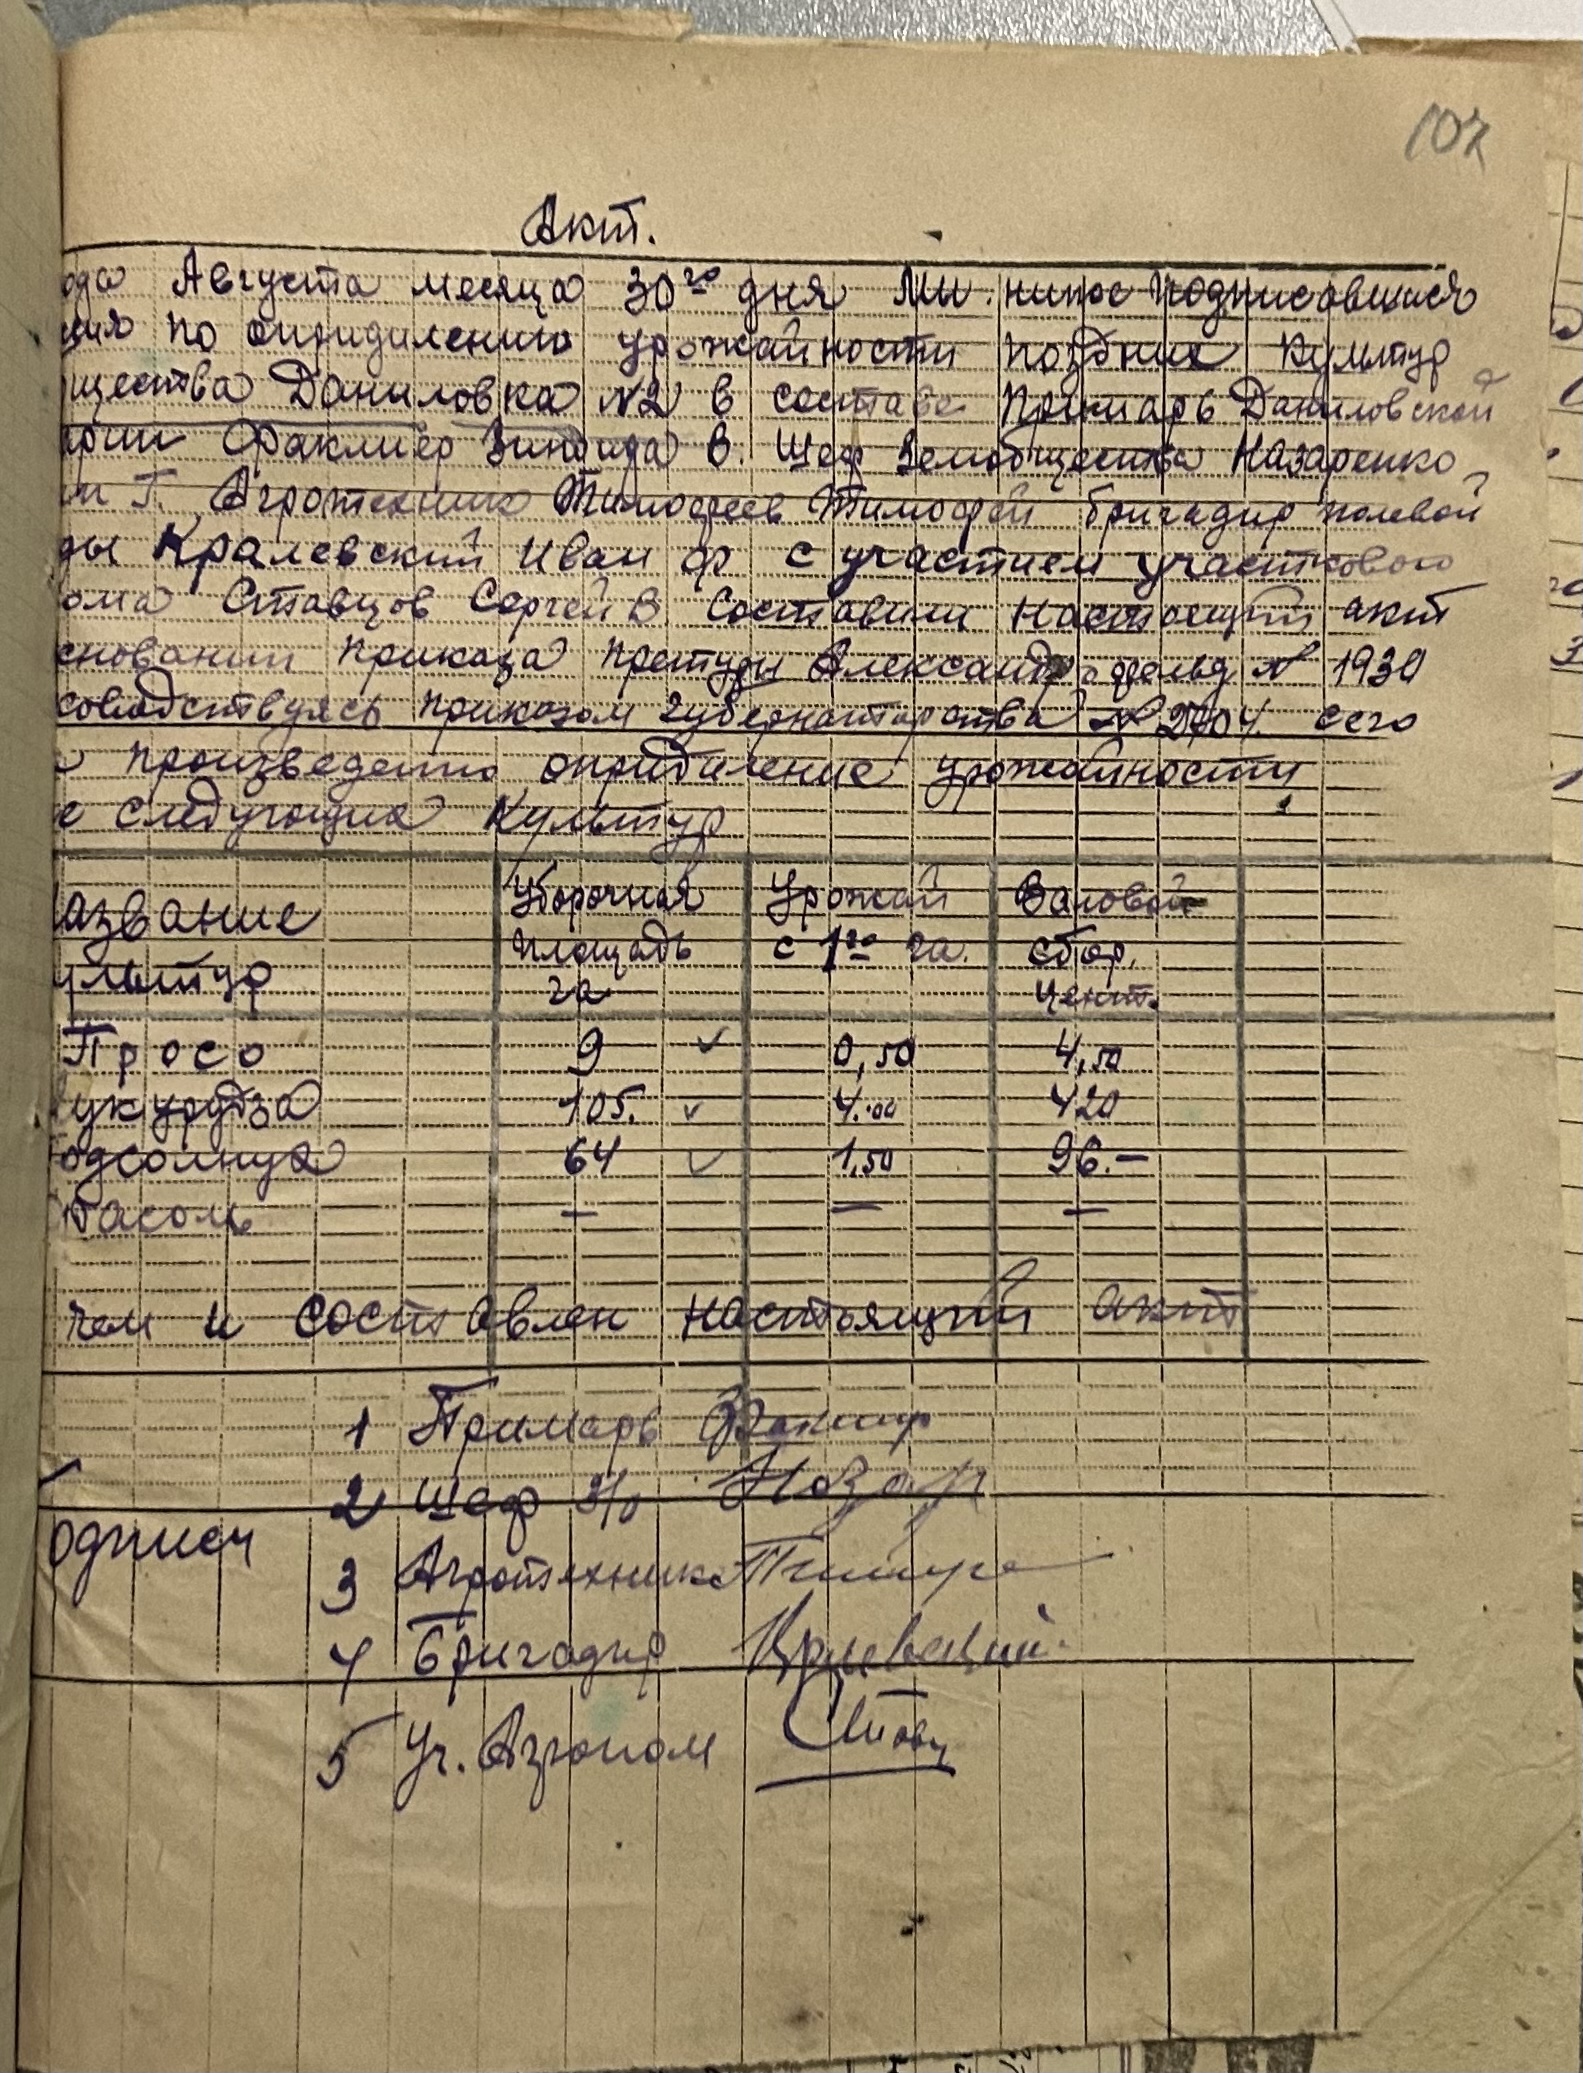 107
Акт.
ода Августа месяца 30го дня Мы нипое подписавшиеся
ция по опридилению урожайности поздних культур
щества Даниловка №2 в составе Примарь Даниловской
арии Факлиер Зинфида В. Шеф Земобщества Назаренко
ии Г. Агротехник Тимофеев Тимофей бригадир полевой
ды Кралевский Иван Ф с участием участкового
ома Ставцов Сергей В Составили настоящий акт
сновании приказа претуры Александрофельд № 1930
соводствуясь приказом губернаторства № 2704 сего
произведено опридиление урожайности
е следующих культур
азвание Уборочная Урожай Валовой
ультур площадь с 1го га. сбор.
га цент.
Просо 9 ✓ 0,50 4,50
укурудза 105. ✓ 4.00 420
одсолнух 64 ✓ 1,50 96.—
Фасоль — — —
чем и составлен настоящий акт
1 Примарь
2 Шеф з/о Назар
одписи
3 Агротехник
4 Бригадир Кралевский
5 Уч. Агроном Ставц